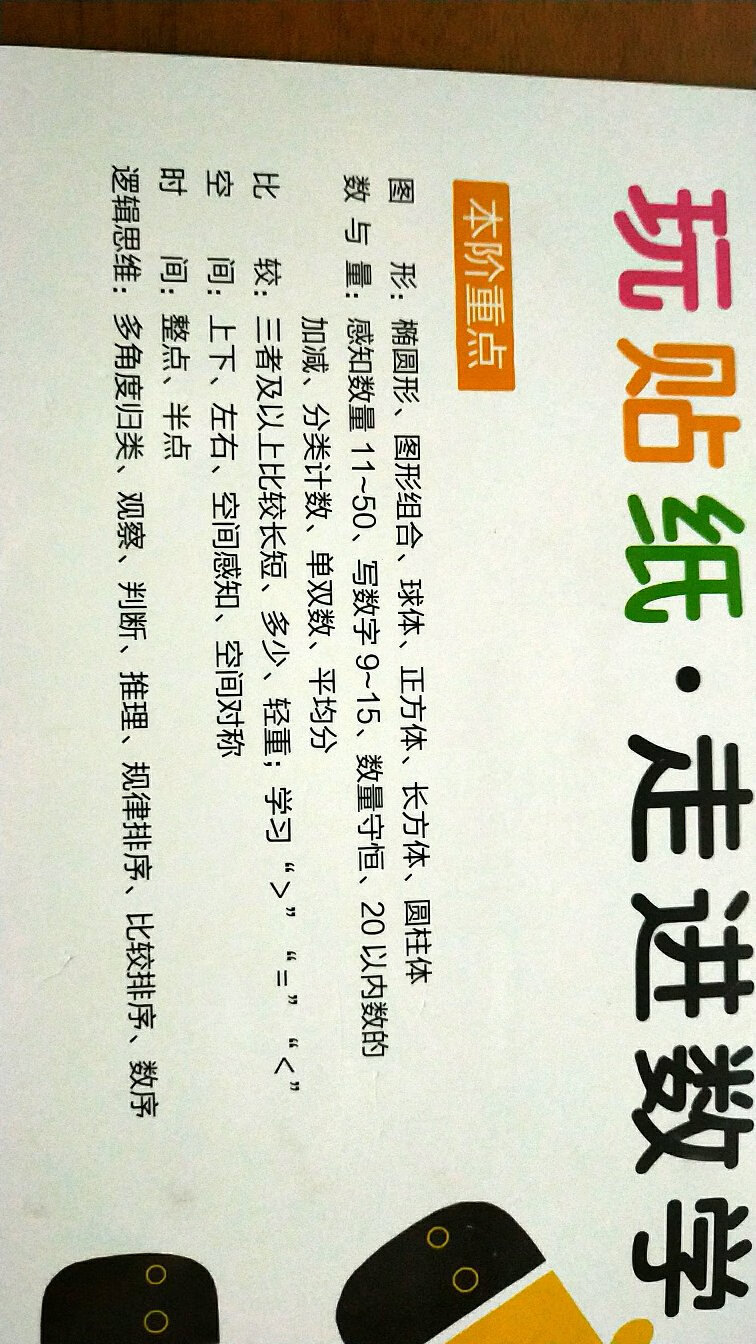 玩贴纸·走进数学
本阶重点
图形：椭圆形、图形组合、球体、正方体、长方体、圆柱体
数与量：感知数量11~50、写数字9~15、数量守恒、20以内数的
加减、分类计数、单双数、平均分
比较：三者及以上比较长短、多少、轻重；学习“>”“=”“<”
空间：上下、左右、空间感知、空间对称
时间：整点、半点
逻辑思维：多角度归类、观察、判断、推理、规律排序、比较排序、数序